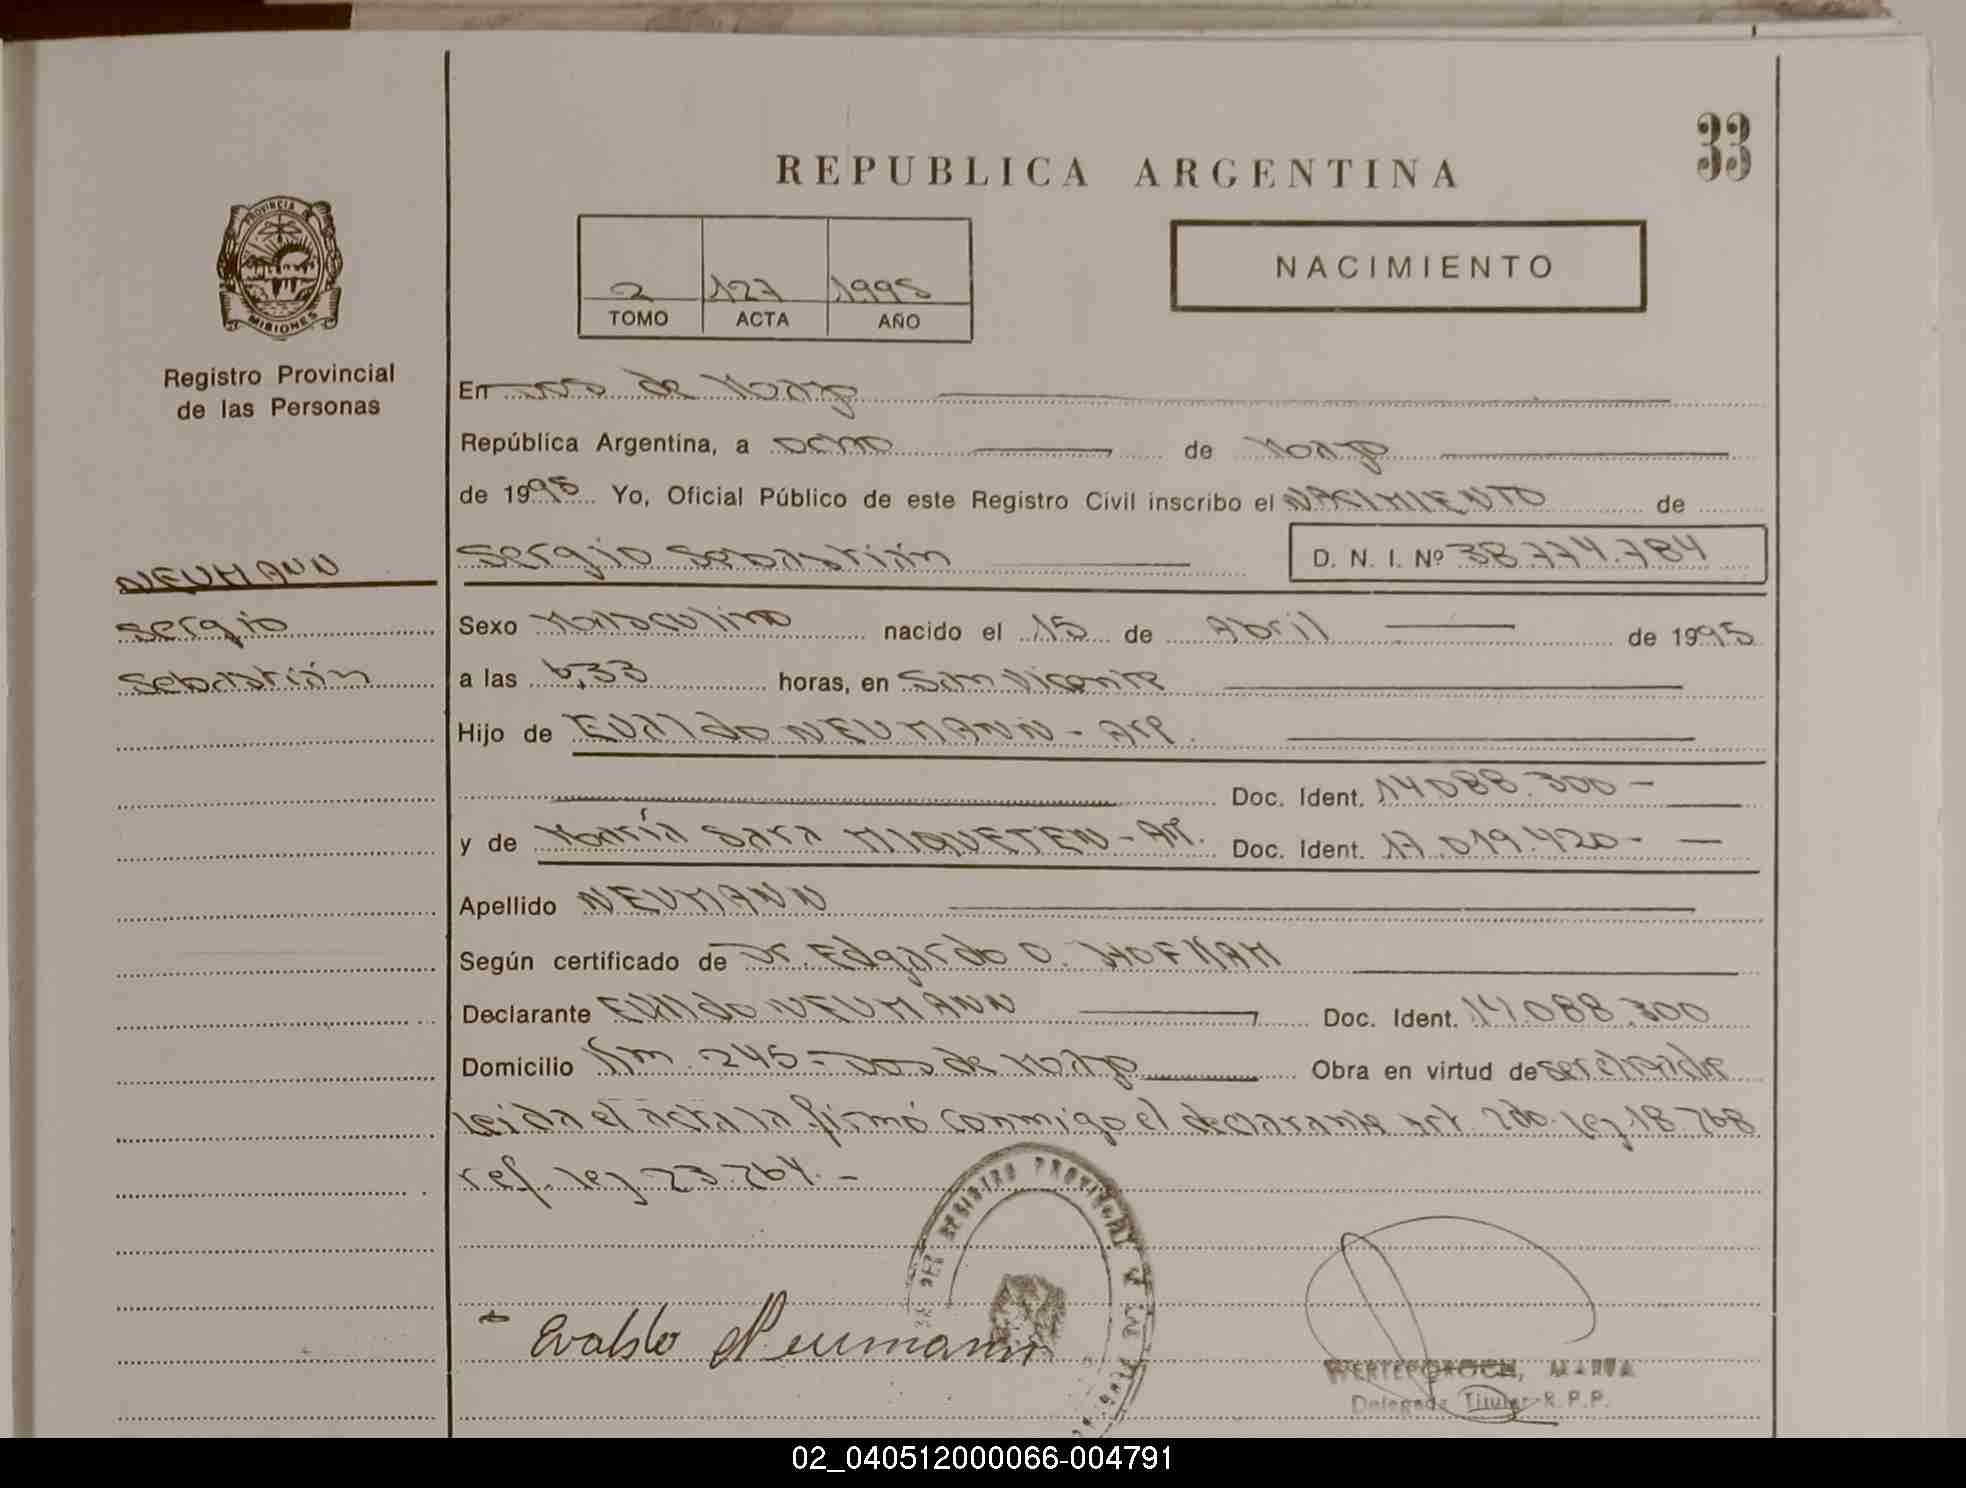 33
REPUBLICA ARGENTINA
PROVINCIA DE
MISIONES
Registro Provincial
de las Personas
2 127 1995
TOMO ACTA AÑO
NACIMIENTO
En Dos de Mayo
República Argentina, a ocho de Mayo
de 1995 Yo, Oficial Público de este Registro Civil inscribo el NACIMIENTO de
NEUMANN
Sergio Sebastián D. N. I. Nº 38.774.784
Sergio
Sexo Masculino nacido el 15 de Abril de 1995
Sebastián
a las 6,33 horas, en San Vicente
Hijo de Evaldo NEUMANN - Arg.
Doc. Ident. 14.088.300 -
y de María Sara MIQUETEN - Ar. Doc. Ident. 17.019.420 -
Apellido NEUMANN
Según certificado de Dr. Edgardo O. HOFMAM
Declarante Evaldo NEUMANN Doc. Ident. 14.088.300
Domicilio Km. 245 - Dos de Mayo Obra en virtud de ser el padre
Leida el acta la firmó conmigo el declarante Art. 2do. Ley 18.768
ref. ley 23.264. -
REGISTRO PROVINCIAL DE LAS
Evaldo Neumann
WERTEPOROCH, MARTA
Delegada Titular R.P.P.
02_040512000066-004791